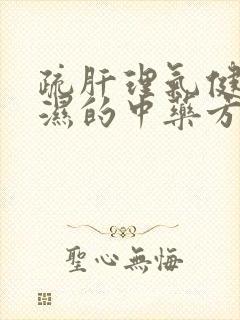 疏肝理气健
濕的中藥方
聖心無悔